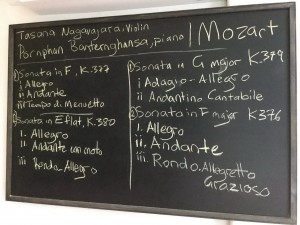 Tasana Nagavajara, Violin
Pornphan Banternghansa, piano
Mozart
1) Sonata in F, K.377
i Allegro
ii Andante
iii Tempo di Menuetto
2) Sonata in E flat, K.380
i. Allegro
ii. Andante con moto
iii. Rondo. Allegro
1) Sonata in G major K.379
i Adagio-Allegro
ii Andantino Cantabile
2) Sonata in F major K376
i. Allegro
ii. Andante
iii. Rondo. Allegretto
Grazioso